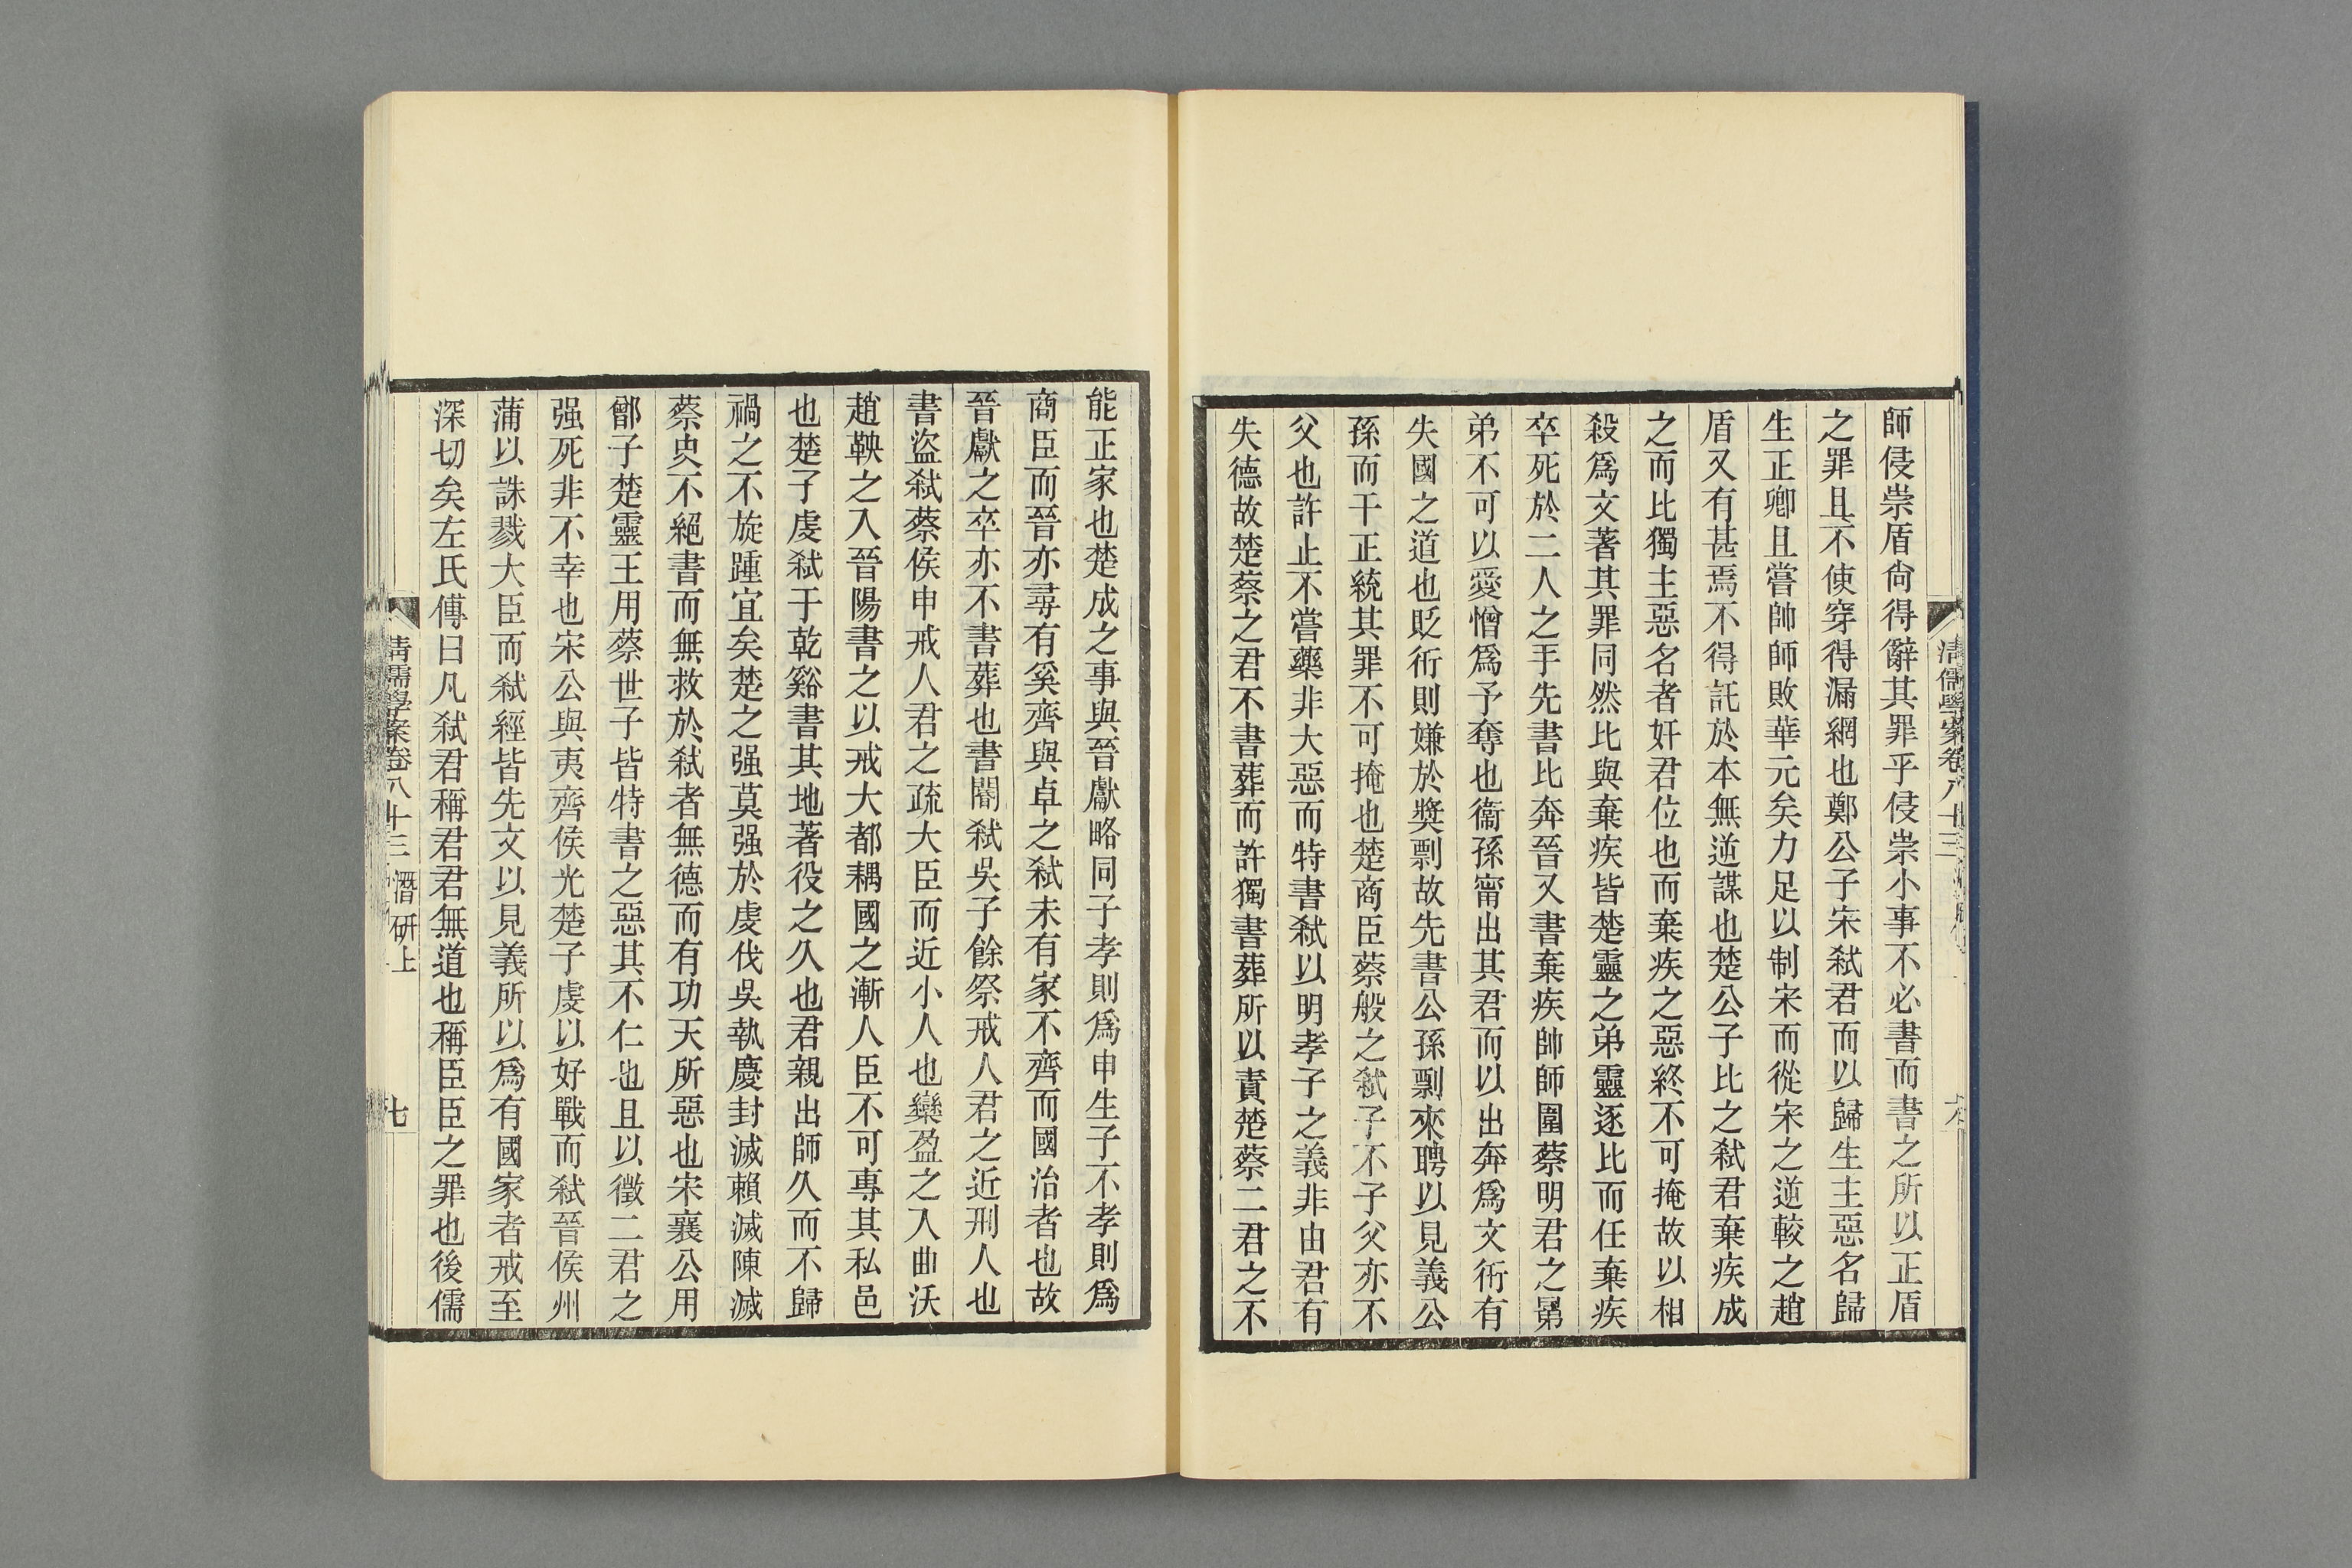 師侵崇盾尙得辭其罪乎侵崇小事不必書而書之所以正盾
之罪且不使穿得漏網也鄭公子宋弑君而以歸生主惡名歸
生正卿且嘗帥師敗華元矣力足以制宋而從宋之逆較之趙
盾又有甚焉不得託於本無逆謀也楚公子比之弑君棄疾成
之而比獨主惡名者奸君位也而棄疾之惡終不可掩故以相
殺爲文著其罪同然比與棄疾皆楚靈之弟靈逐比而任棄疾
卒死於二人之手先書比奔晉又書棄疾帥師圍蔡明君之暴
弟不可以愛憎爲予奪也衞孫甯出其君而以出奔爲文衎有
失國之道也貶衎則嫌於獎剽故先書公孫剽來聘以見義公
孫而干正統其罪不可掩也楚商臣蔡般之弑子不子父亦不
父也許止不嘗藥非大惡而特書弑以明孝子之義非由君有
失德故楚蔡之君不書葬而許獨書葬所以責楚蔡二君之不
能正家也楚成之事與晉獻略同子孝則爲申生子不孝則爲
商臣而晉亦尋有奚齊與卓之弑未有家不齊而國治者也故
晉獻之卒亦不書葬也書閽弑吳子餘祭戒人君之近刑人也
書盜弑蔡侯申戒人君之疏大臣而近小人也欒盈之入曲沃
趙鞅之入晉陽書之以戒大都耦國之漸人臣不可專其私邑
也楚子虔弑于乾谿書其地著役之久也君親出師久而不歸
禍之不旋踵宜矣楚之强莫强於虔伐吳執慶封滅賴滅陳滅
蔡史不絕書而無救於弑者無德而有功天所惡也宋襄公用
鄫子楚靈王用蔡世子皆特書之惡其不仁也且以徵二君之
强死非不幸也宋公與夷齊侯光楚子虔以好戰而弑晉侯州
蒲以誅戮大臣而弑經皆先文以見義所以爲有國家者戒至
深切矣左氏傳曰凡弑君稱君君無道也稱臣臣之罪也後儒
清儒學案卷八十三 潛研上
七